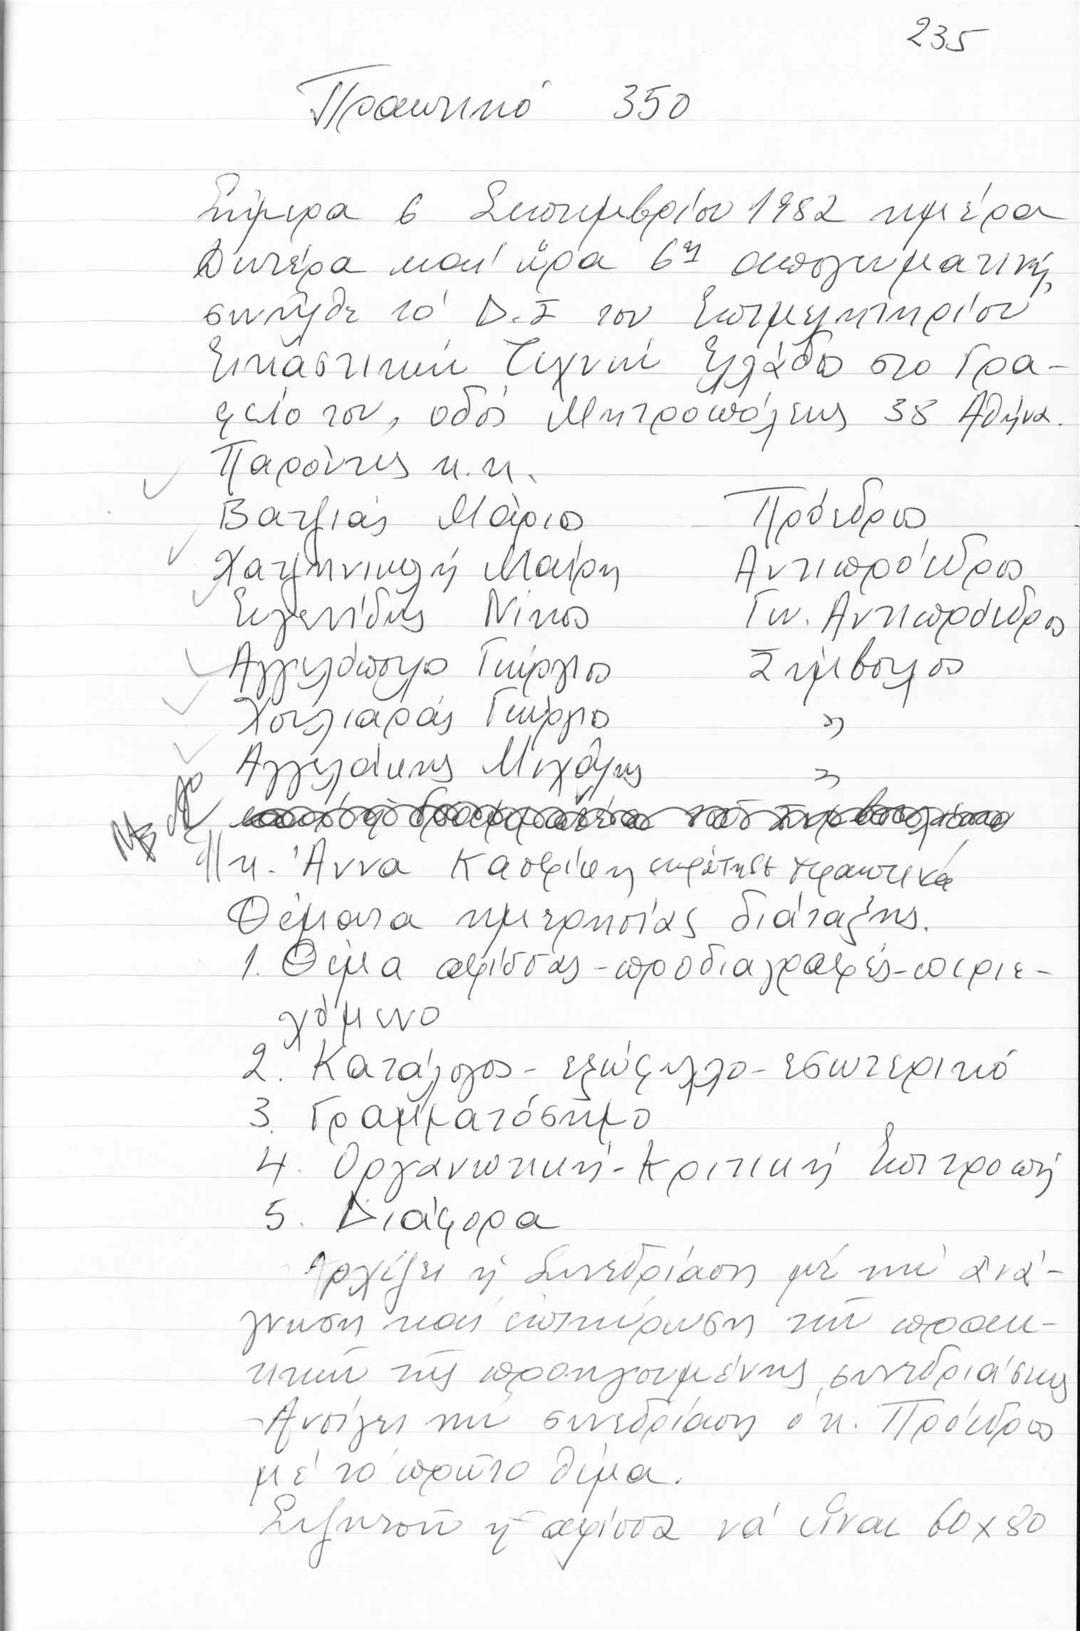 235
Πρακτικό 350
Σήμερα 6 Σεπτεμβρίου 1982 ημέρα
Δευτέρα και ὥρα 6η απογευματινή,
συνήλθε το Δ.Σ του Επιμελητηρίου
Εικαστικών Τεχνών Ελλάδος στο Γρα-
φείο του, οδός Μητροπόλεως 38 Αθήνα.
Παρόντες κ.κ.
Βατζιάς Μάριος Πρόεδρος
Χατζηνικολή Μαίρη Αντιπρόεδρος
Ευγενίδης Νίκος Γεν. Αντιπρόεδρος
Αγγελόπουλος Γεώργιος Σύμβουλος
Χουλιαράς Γεώργιος "
Αγγελάκης Μιχάλης "
Η κ. Άννα κρατησε πρακτικά
Θέματα ημερησίας διάταξης.
1. Θέμα αφίσσας-προδιαγραφές-περιε-
χόμενο
2. Κατάλογος-εξώφυλλο-εσωτερικό
3. Γραμματόσημο
4. Οργανωτική-Κριτική Επιτροπή
5. Διάφορα
Αρχίζει ἡ Συνεδρίαση μέ την ἀνά-
γνωση και ἐπικύρωση τῶν πρακ-
τικῶν τῆς προηγουμένης συνεδριάσεως
Ανοίγει την συνεδρίαση ὁ κ. Πρόεδρος
μέ το πρῶτο θέμα.
Συζητοῦν ἡ αφίσσα νά εἶναι 60 x 80